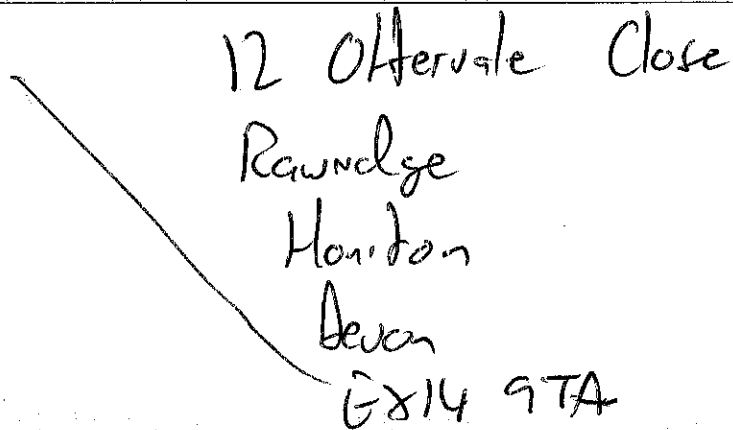 12 Ottervale Close
Rawridge
Honiton
Devon
EX14 9TA